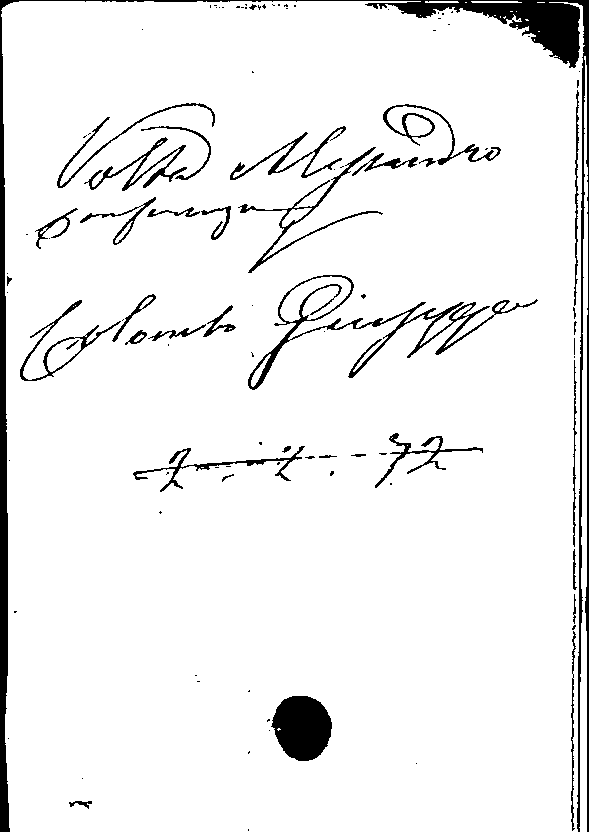 Volta Alessandro
conferenza
Colombo Giuseppe
2.2.72